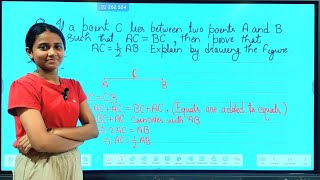 Q. If a point C lies between two points A and B
such that AC = BC, then prove that
AC = 1/2 AB. Explain by drawing the figure
C
A B
= CB
AC = BC + AC. (Equals are added to equals)
+ AC Coincides with AB
2AC = AB
AC = 1/2 AB